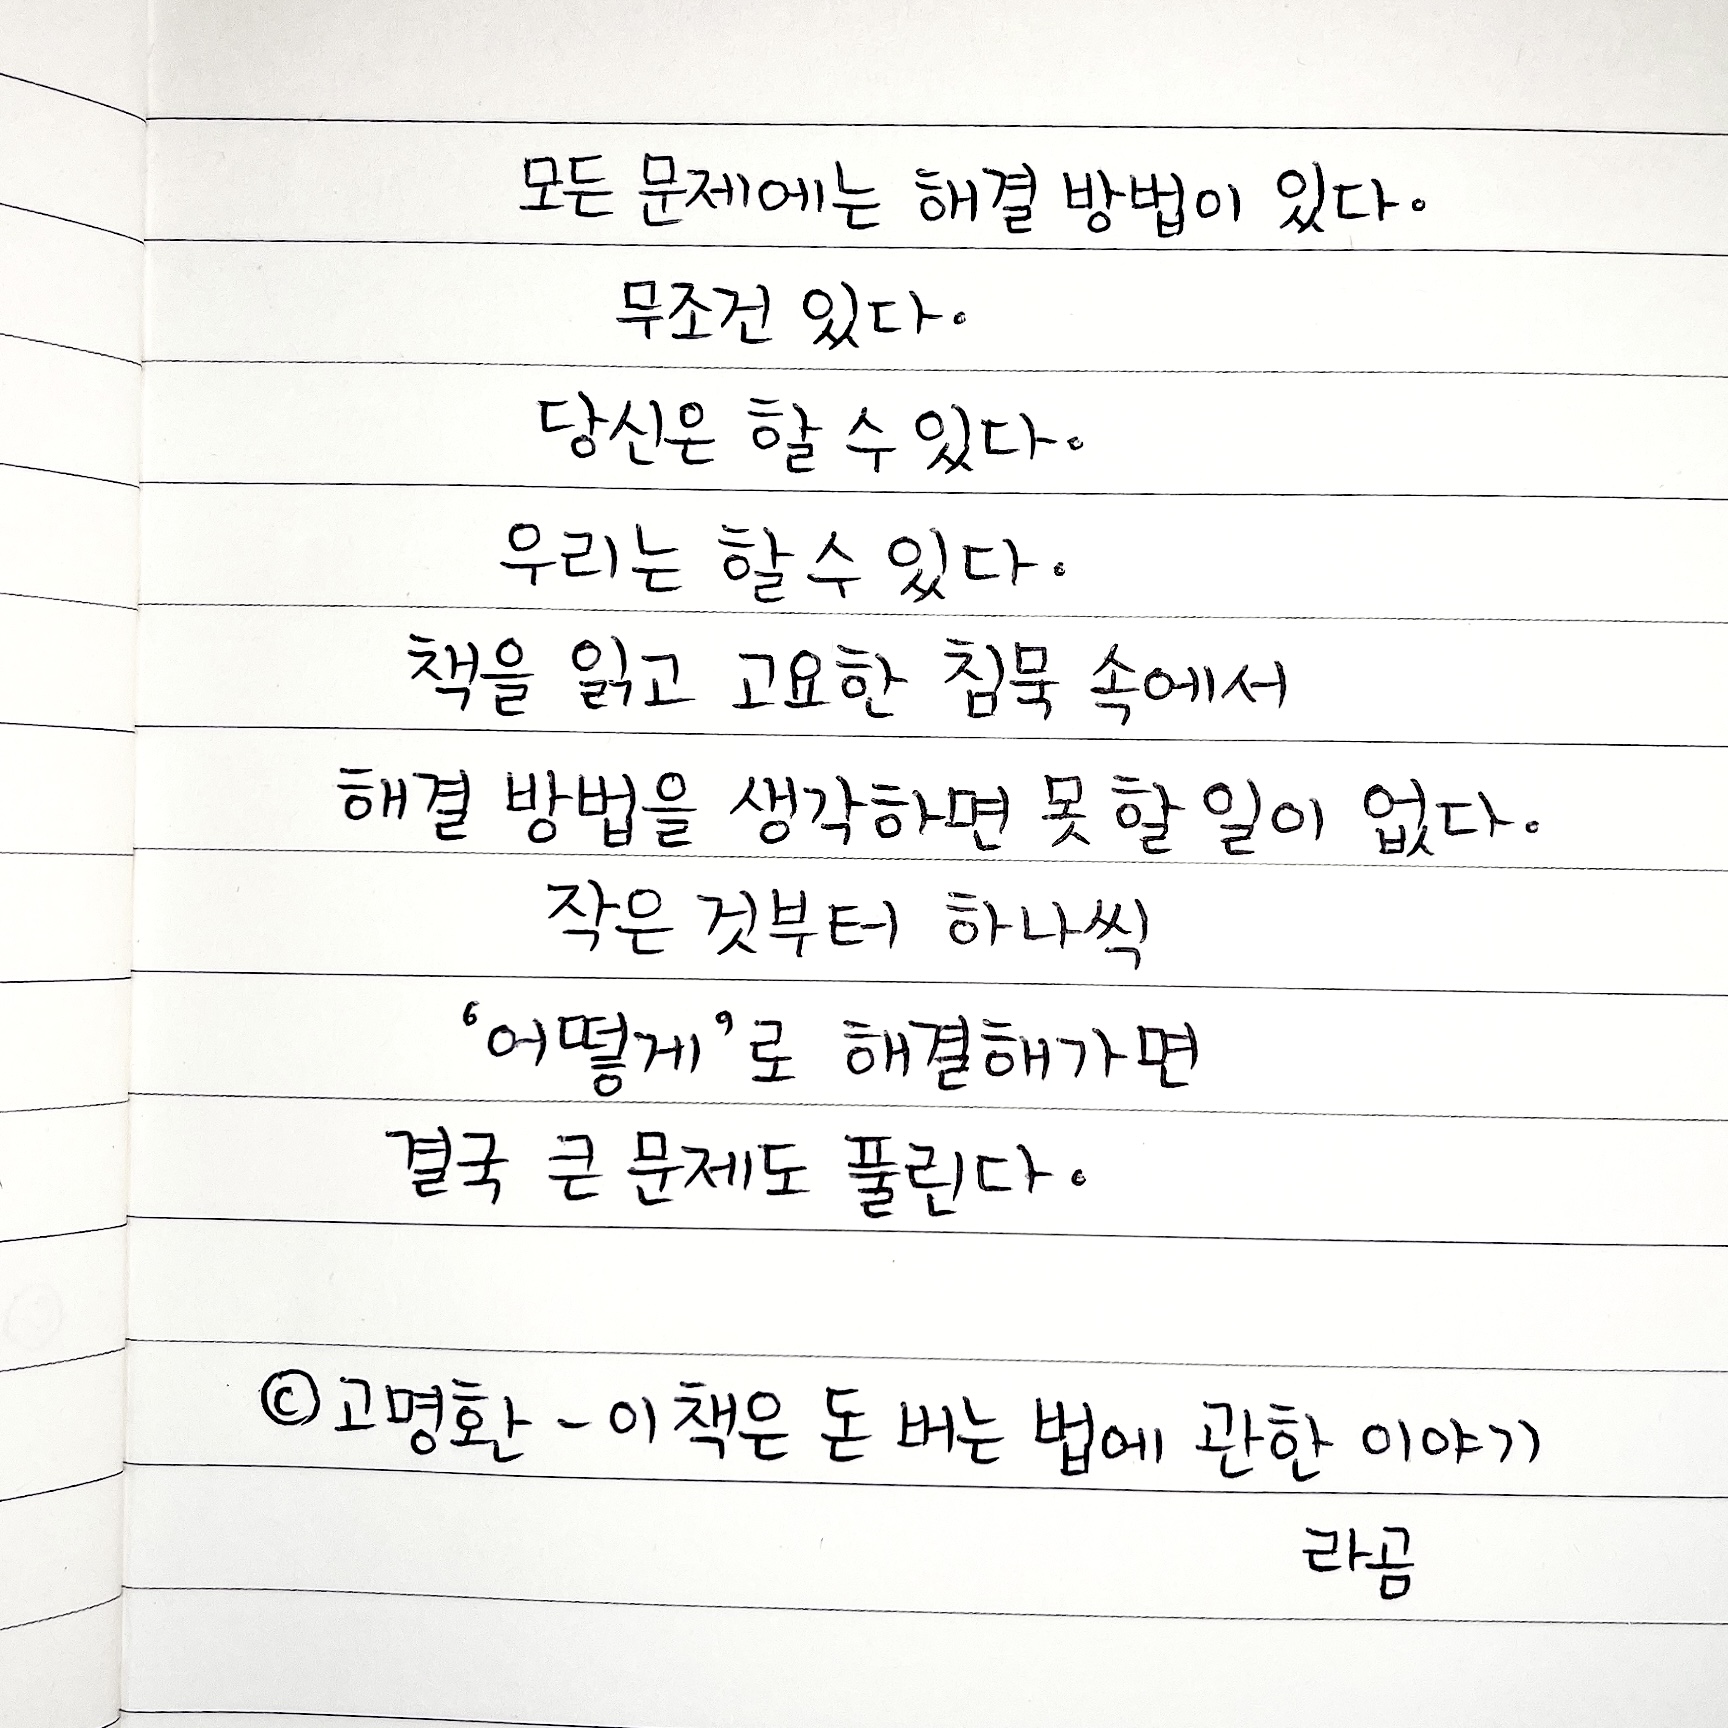 모든 문제에는 해결 방법이 있다.
무조건 있다.
당신은 할 수 있다.
우리는 할 수 있다.
책을 읽고 고요한 침묵 속에서
해결 방법을 생각하면 못 할 일이 없다.
작은 것부터 하나씩
‘어떻게’로 해결해가면
결국 큰 문제도 풀린다.
©고명환 - 이 책은 돈 버는 법에 관한 이야기
라곰